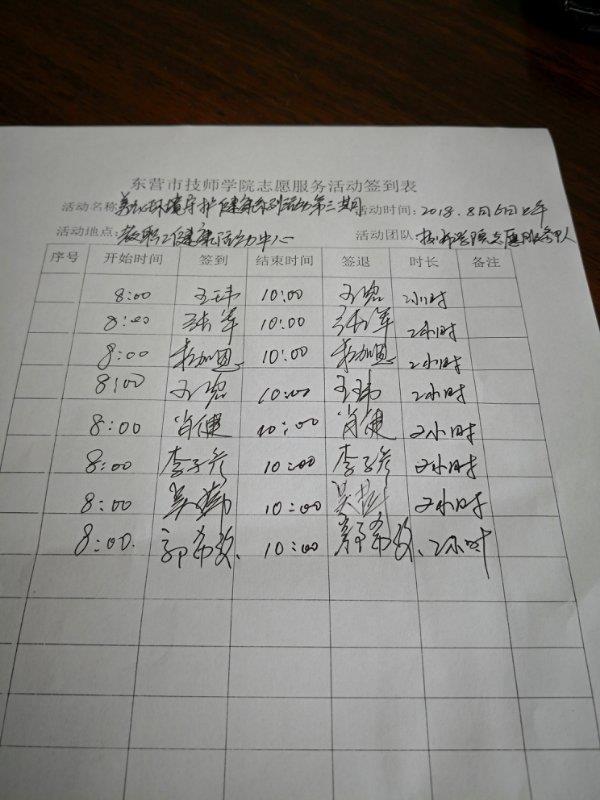 东营市技师学院志愿服务活动签到表
活动名称:美化环境守护健康系列活动第三期 活动时间:2018.8月6日上午
活动地点:教职工健康活动中心 活动团队:技师学院志愿服务队
序号 开始时间 签到 结束时间 签退 时长 备注
8:00 王玮 10:00 王宏 2小时
8:00 张军 10:00 张军 2小时
8:00 加恩 10:00 加恩 2小时
8:00 王宏 10:00 王玮 2小时
8:00 肖健 10:00 肖健 2小时
8:00 李子彦 10:00 李子彦 2小时
8:00 吴 10:00 吴 2小时
8:00. 郭希 10:00 郭希 2小时